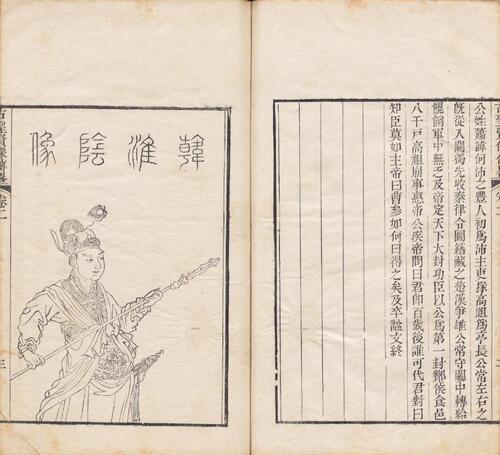 公姓蕭諱何沛之豐人初爲沛主吏掾高祖爲亭長公常左右之
旣從入關獨先收秦律令圖籍藏之楚漢爭雄公常守關中轉給
餽餉軍中無乏及帝定天下大封功臣以公爲第一封酇侯食邑
八千戶高祖崩事惠帝公疾帝問曰君卽百歲後誰可代君對曰
知臣莫如主帝曰曹參如何曰得之矣及卒諡文終
韓淮陰像
古聖賢像傳畧 卷二 三